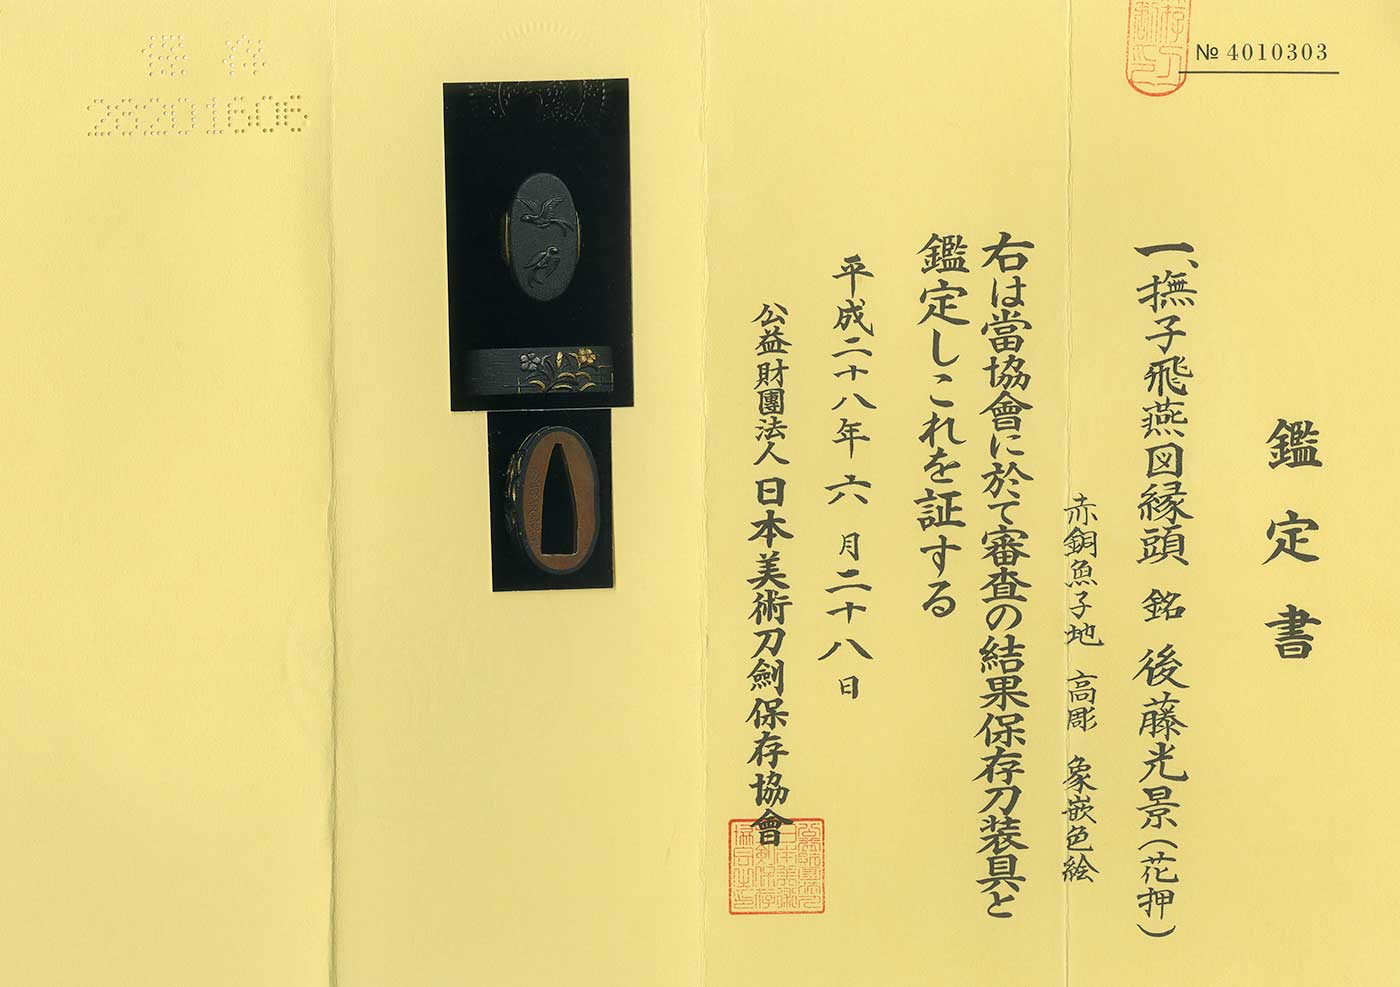 № 4010303
鑑定書
一、撫子飛燕図縁頭 銘 後藤光景(花押)
赤銅魚子地 高彫 象嵌色絵
右は當協會に於て審査の結果保存刀装具と
鑑定しこれを証する
平成二十八年六月二十八日
公益財團法人日本美術刀劍保存協會
保存
28201606